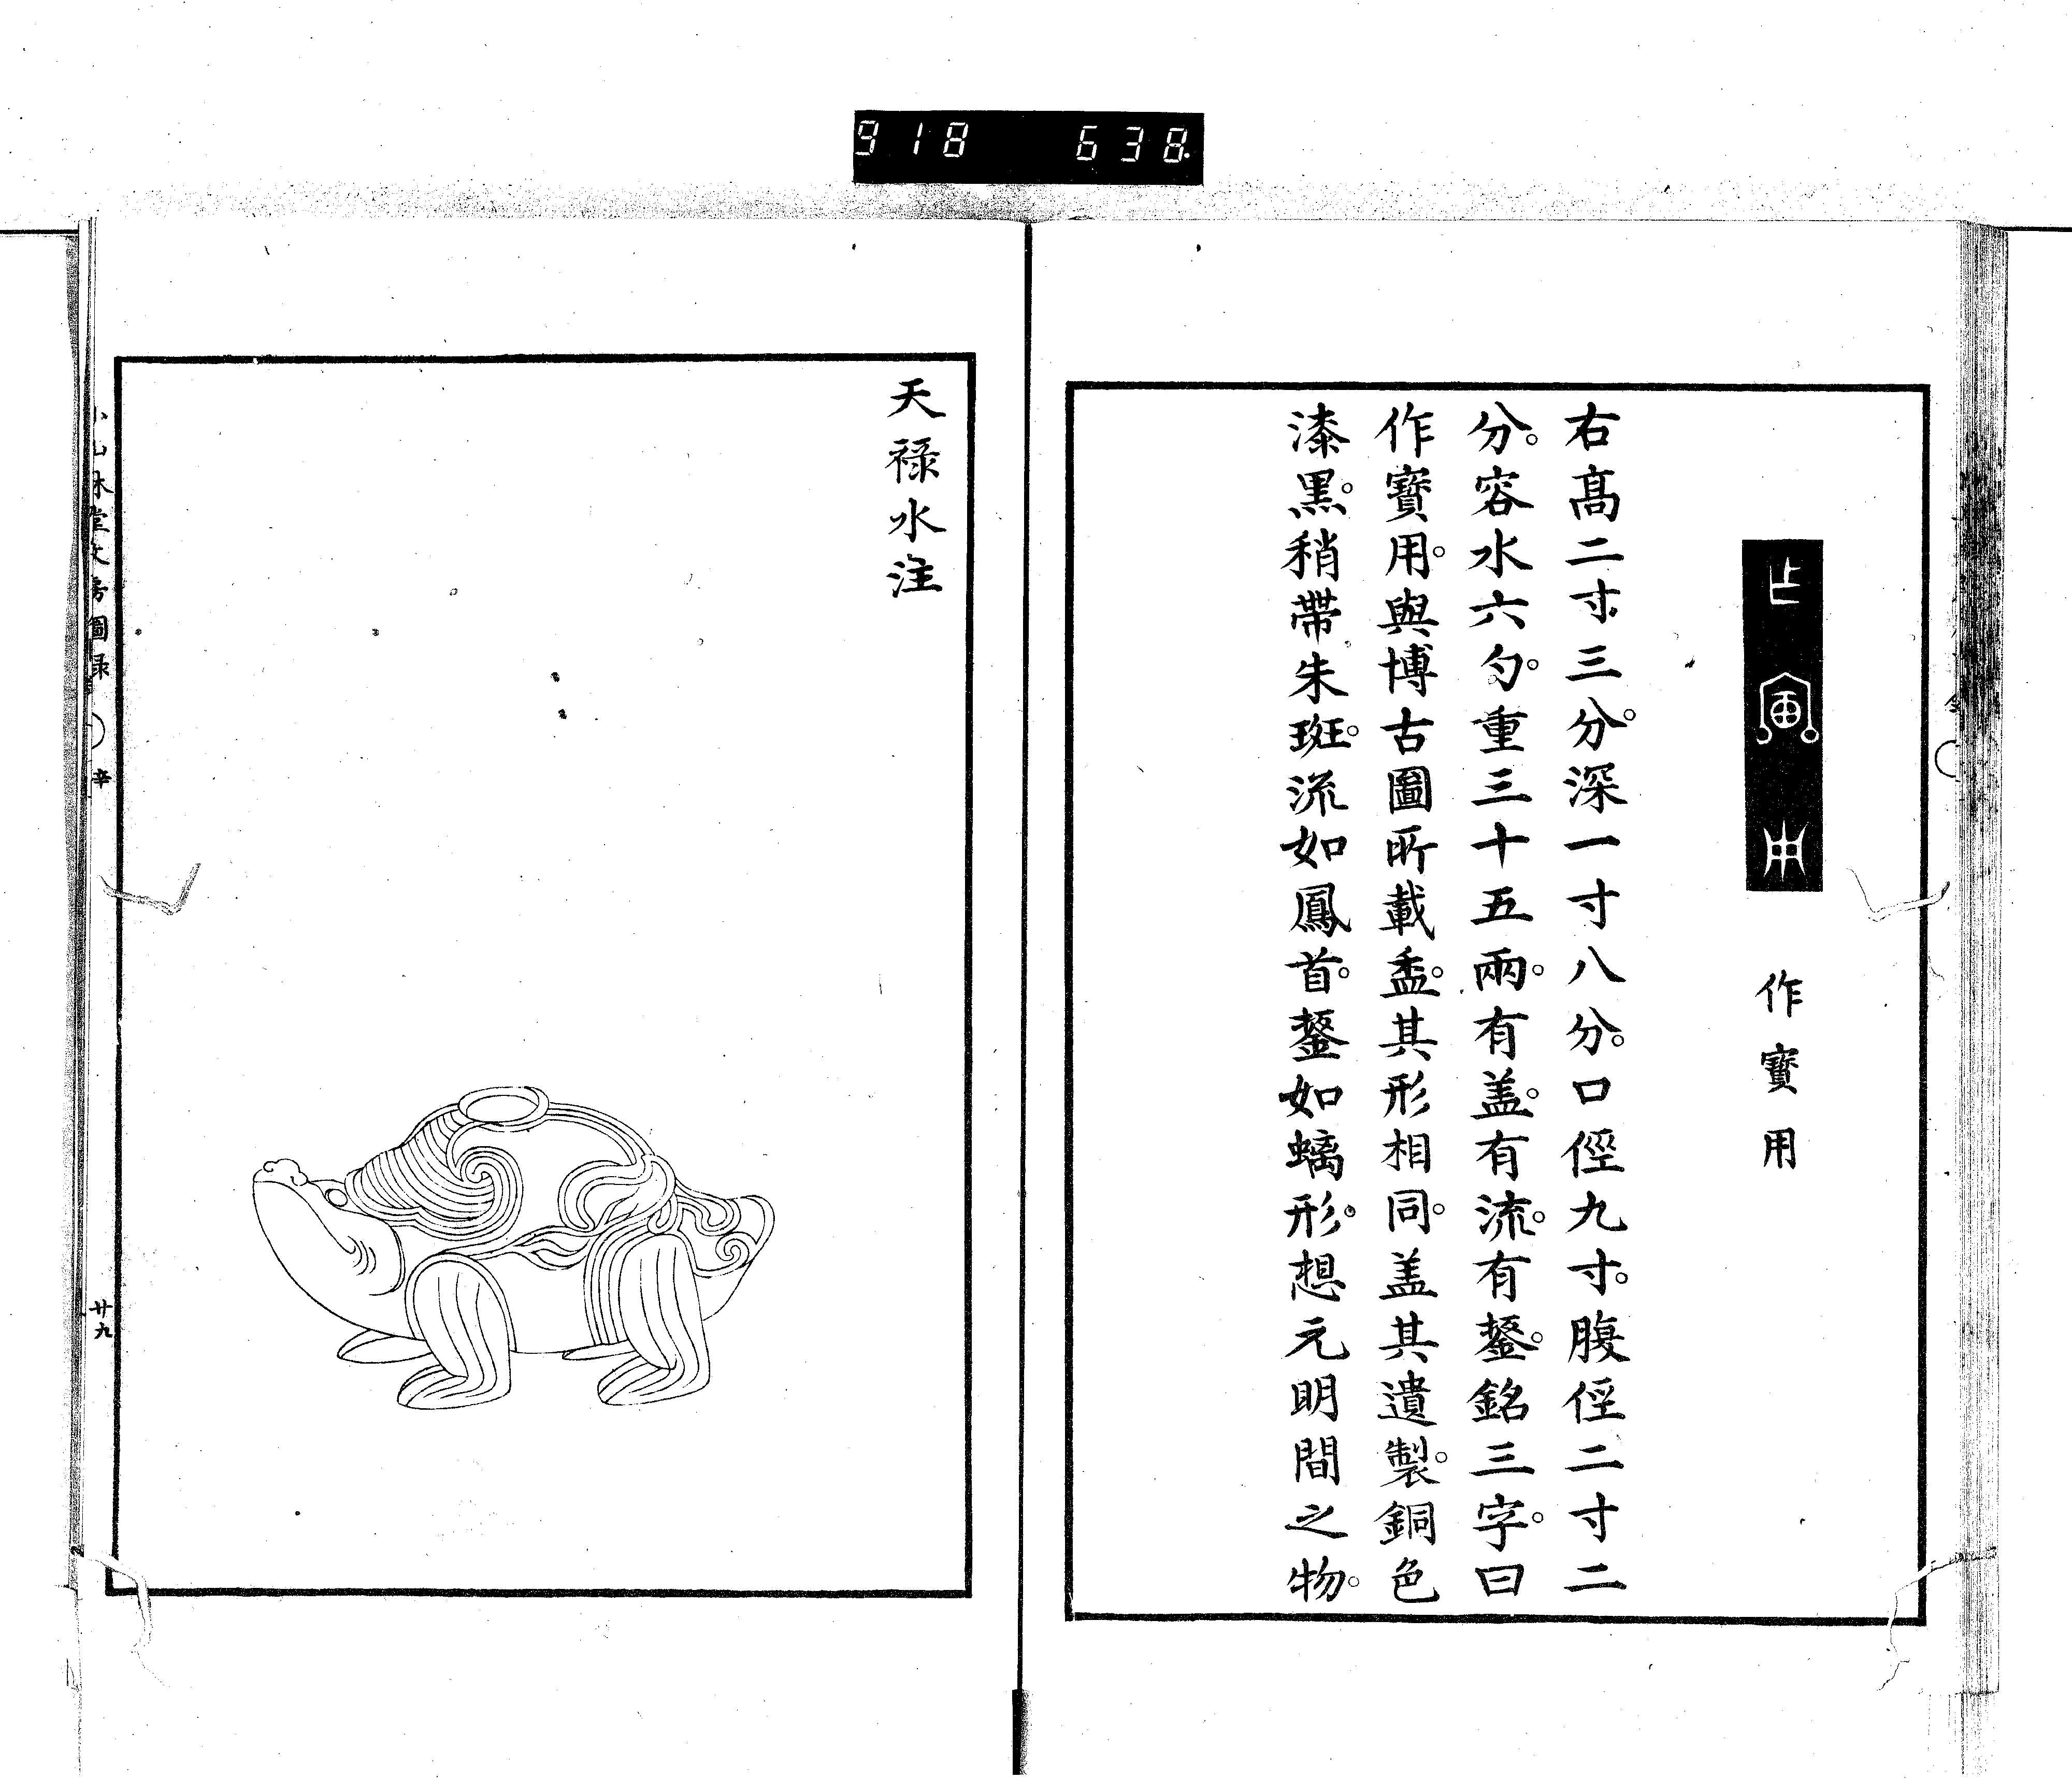 918 638
作寶用
作寶用
右髙二寸三分。深一寸八分。口徑九寸。腹徑二寸二
分。容水六勺。重三十五兩。有盖。有流。有鋬。銘三字。曰
作寶用。與博古圖所載盉。其形相同。盖其遺製。銅色
漆黒。稍帶朱斑。流如鳳首。鋬如螭形。想元明間之物。
天禄水注
小山林堂文房圖録 辛 廿九